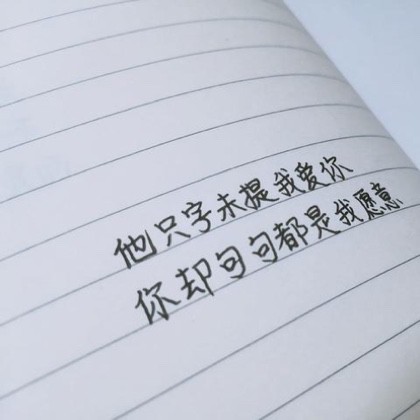 他只字未提我爱你
你却句句都是我愿意